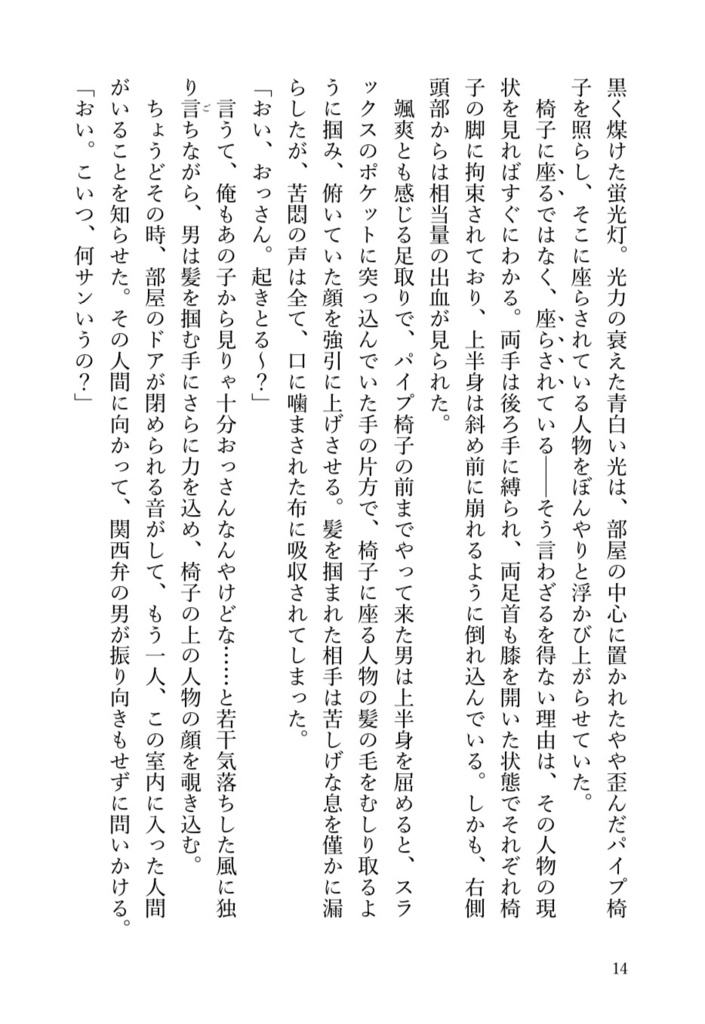 黒く煤けた蛍光灯。光力の衰えた青白い光は、部屋の中心に置かれたやや歪んだパイプ椅
子を照らし、そこに座らされている人物をぼんやりと浮かび上がらせていた。
　椅子に座るではなく、座らされている――そう言わざるを得ない理由は、その人物の現
状を見ればすぐにわかる。両手は後ろ手に縛られ、両足首も膝を開いた状態でそれぞれ椅
子の脚に拘束されており、上半身は斜め前に崩れるように倒れ込んでいる。しかも、右側
頭部からは相当量の出血が見られた。
　颯爽とも感じる足取りで、パイプ椅子の前までやって来た男は上半身を屈めると、スラ
ックスのポケットに突っ込んでいた手の片方で、椅子に座る人物の髪の毛をむしり取るよ
うに掴み、俯いていた顔を強引に上げさせる。髪を掴まれた相手は苦しげな息を僅かに漏
らしたが、苦悶の声は全て、口に噛まされた布に吸収されてしまった。
「おい、おっさん。起きとる～？」
　言うて、俺もあの子から見りゃ十分おっさんなんやけどな……と若干気落ちした風に独
り言ちながら、男は髪を掴む手にさらに力を込め、椅子の上の人物の顔を覗き込む。
　ちょうどその時、部屋のドアが閉められる音がして、もう一人、この室内に入った人間
がいることを知らせた。その人間に向かって、関西弁の男が振り向きもせずに問いかける。
「おい。こいつ、何サンいうの？」
14